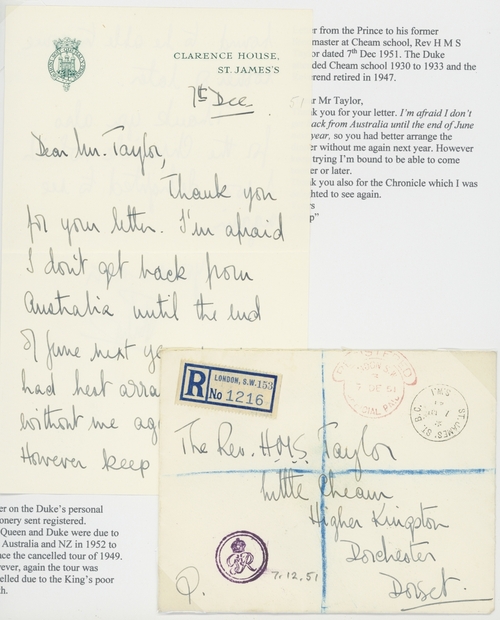 er from the Prince to his former
master at Cheam school, Rev H M S
or dated 7th Dec 1951. The Duke
ded Cheam school 1930 to 1933 and the
erend retired in 1947.
CLARENCE HOUSE,
ST. JAMES'S
7th Dec
51
Dear Mr. Taylor,
Thank you
for your letter. I'm afraid
I don't get back from
Australia until the end
of June next ye
had best arra
without me ag
However keep
ar Mr Taylor,
nk you for your letter. I'm afraid I don't
back from Australia until the end of June
year, so you had better arrange the
er without me again next year. However
trying I'm bound to be able to come
er or later.
nk you also for the Chronicle which I was
ghted to see again.
rs
p"
R
LONDON, S.W. 153
No 1216
The Rev. H.M.S. Taylor
Little Cheam
Higher Kingston
Dorchester
Dorset.
7.12.51
P.
er on the Duke's personal
onery sent registered.
Queen and Duke were due to
Australia and NZ in 1952 to
ce the cancelled tour of 1949.
ever, again the tour was
elled due to the King's poor
h.